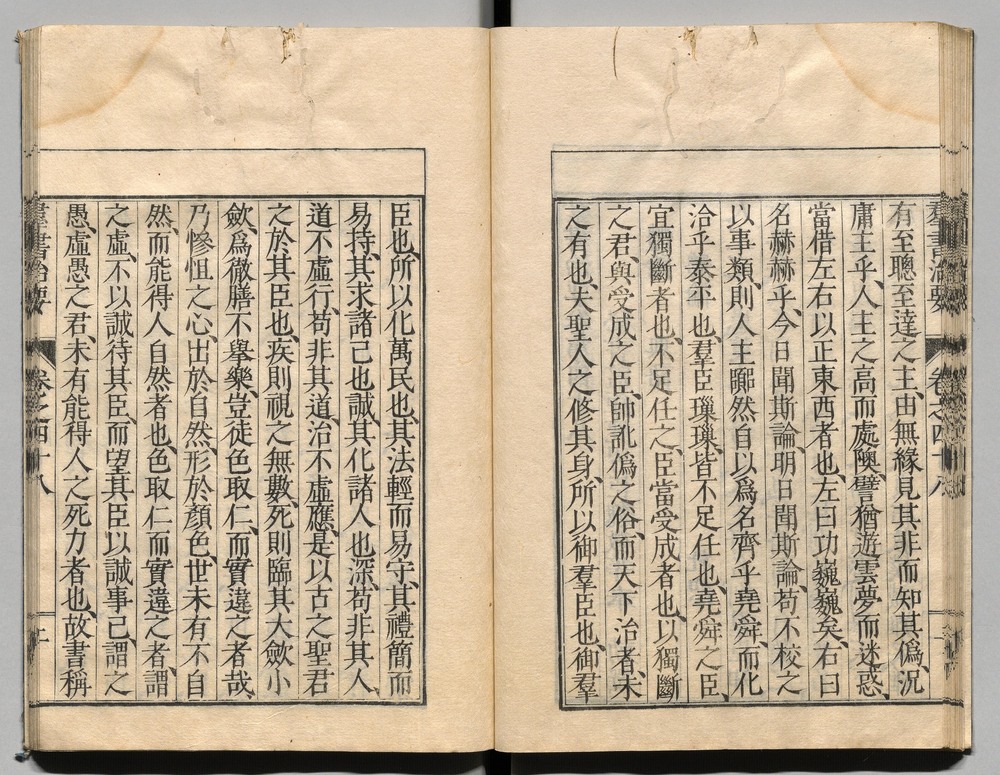 有至聰至達之主、由無緣見其非而知其僞、況
庸主乎、人主之高而處隩、譬猶遊雲夢而迷惑、
當借左右以正東西者也、左曰功巍巍矣、右曰
名赫赫乎、今日聞斯論、明日聞斯論、苟不校之
以事類、則人主嚻然自以爲名齊乎堯舜、而化
洽乎泰平也、羣臣璅璅、皆不足任也、堯舜之臣、
宜獨斷者也、不足任之、臣當受成者也、以獨斷
之君、與受成之臣、帥訛僞之俗、而天下治者、未
之有也、夫聖人之修其身、所以御羣臣也、御羣
臣也、所以化萬民也、其法輕而易守、其禮簡而
易持、其求諸己也誠、其化諸人也深、苟非其人、
道不虛行、苟非其道、治不虛應、是以古之聖君
之於其臣也、疾則視之無數、死則臨其大斂小
斂、爲徹膳不舉樂、豈徒色取仁、而實違之者哉、
乃慘怛之心、出於自然、形於顏色、世未有不自
然、而能得人自然者也、色取仁而實違之者、謂
之虛、不以誠待其臣、而望其臣以誠事己、謂之
愚、虛愚之君、未有能得人之死力者也、故書稱
羣書治要
卷之四十八